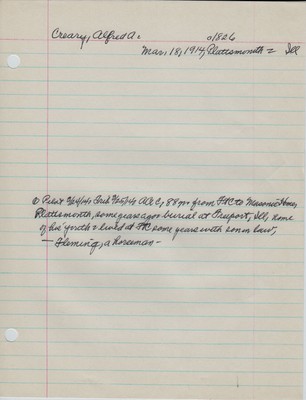 Creary, Alfred A. 01826
Mar, 18, 1914, Plattsmouth Ill
3/24/14, 3/25/14 A A C, 88 yrs from FAC to Masonic Home,
Plattsmouth, some years ago burial at Freeport, Ill, home
of his youth lived at FC some years with son in law,
— Fleming, a horseman -